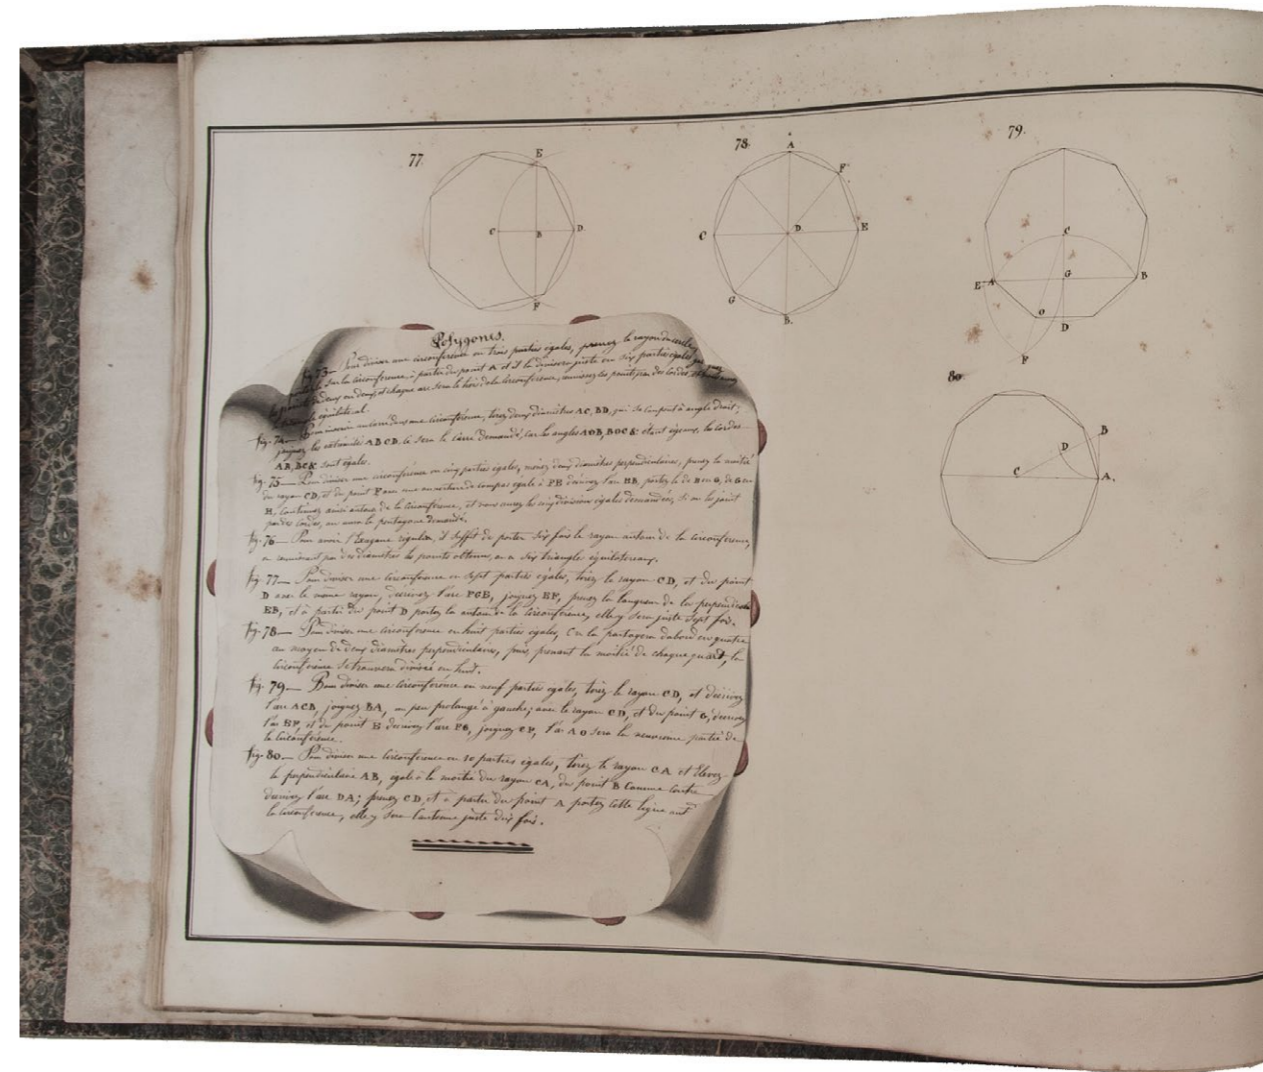 77.
E
C
B
D.
F
78.
A
F
C
D
E
G
B.
79.
C
E
A
G
B
O
D
F
80
B
D
C
A.
Polygones.
fig. 73— Pour diviser une circonférence en trois parties égales, prenez le rayon du cercle,
sur la circonférence, à partir du point A et il la divisera juste en six parties égales
deux en deux, et chaque arc sera le tiers de la circonférence, unissez les points par des cordes
triangle équilatéral.
fig. 74— Pour inscrire un carré dans une circonférence, tirez deux diamètres AC, BD, qui se coupent à angle droit;
joignez les extrémités ABCD, ce sera le carré demandé, car les angles AOB, BOC &c étant égaux, les cordes
AB, BC &c sont égales.
fig. 75— Pour diviser une circonférence en cinq parties égales, menez deux diamètres perpendiculaires, prenez la moitié
du rayon CD, et du point F avec une ouverture de compas égale à FB décrivez l'arc
H, continuez ainsi autour de la circonférence, et vous aurez les cinq divisions égales demandées, si on les joint
par des cordes, on aura le pentagone demandé.
fig. 76— Pour avoir l'hexagone régulier, il suffit de porter six fois le rayon autour de la circonférence,
en réunissant par des diamètres les points obtenus, on a six triangles équilatéraux.
fig. 77— Pour diviser une circonférence en sept parties égales, tirez le rayon CD, et du point
D avec le même rayon, décrivez l'arc FCE, joignez EF, prenez la longueur de la perpendiculaire
EB, et à partir du point D portez la autour de la circonférence, elle y sera juste sept fois.
fig. 78— Pour diviser une circonférence en huit parties égales, on la partagera d'abord en quatre
au moyen de deux diamètres perpendiculaires, puis, prenant la moitié de chaque quart, la
circonférence se trouvera divisée en huit.
fig. 79— Pour diviser une circonférence en neuf parties égales, tirez le rayon CD, et décrivez
l'arc ACB, joignez BA, un peu prolongé à gauche; avec le rayon CD, et du point G, décrivez
l'arc EF, et du point E décrivez l'arc FG, joignez CF, l'arc AO sera la neuvième partie de
la circonférence.
fig. 80— Pour diviser une circonférence en 10 parties égales, tirez le rayon CA et élevez
la perpendiculaire AB, égale à la moitié du rayon CA, du point B comme centre
décrivez l'arc DA; prenez CD, et à partir du point A portez cette ligne sur
la circonférence, elle y sera contenue juste dix fois.